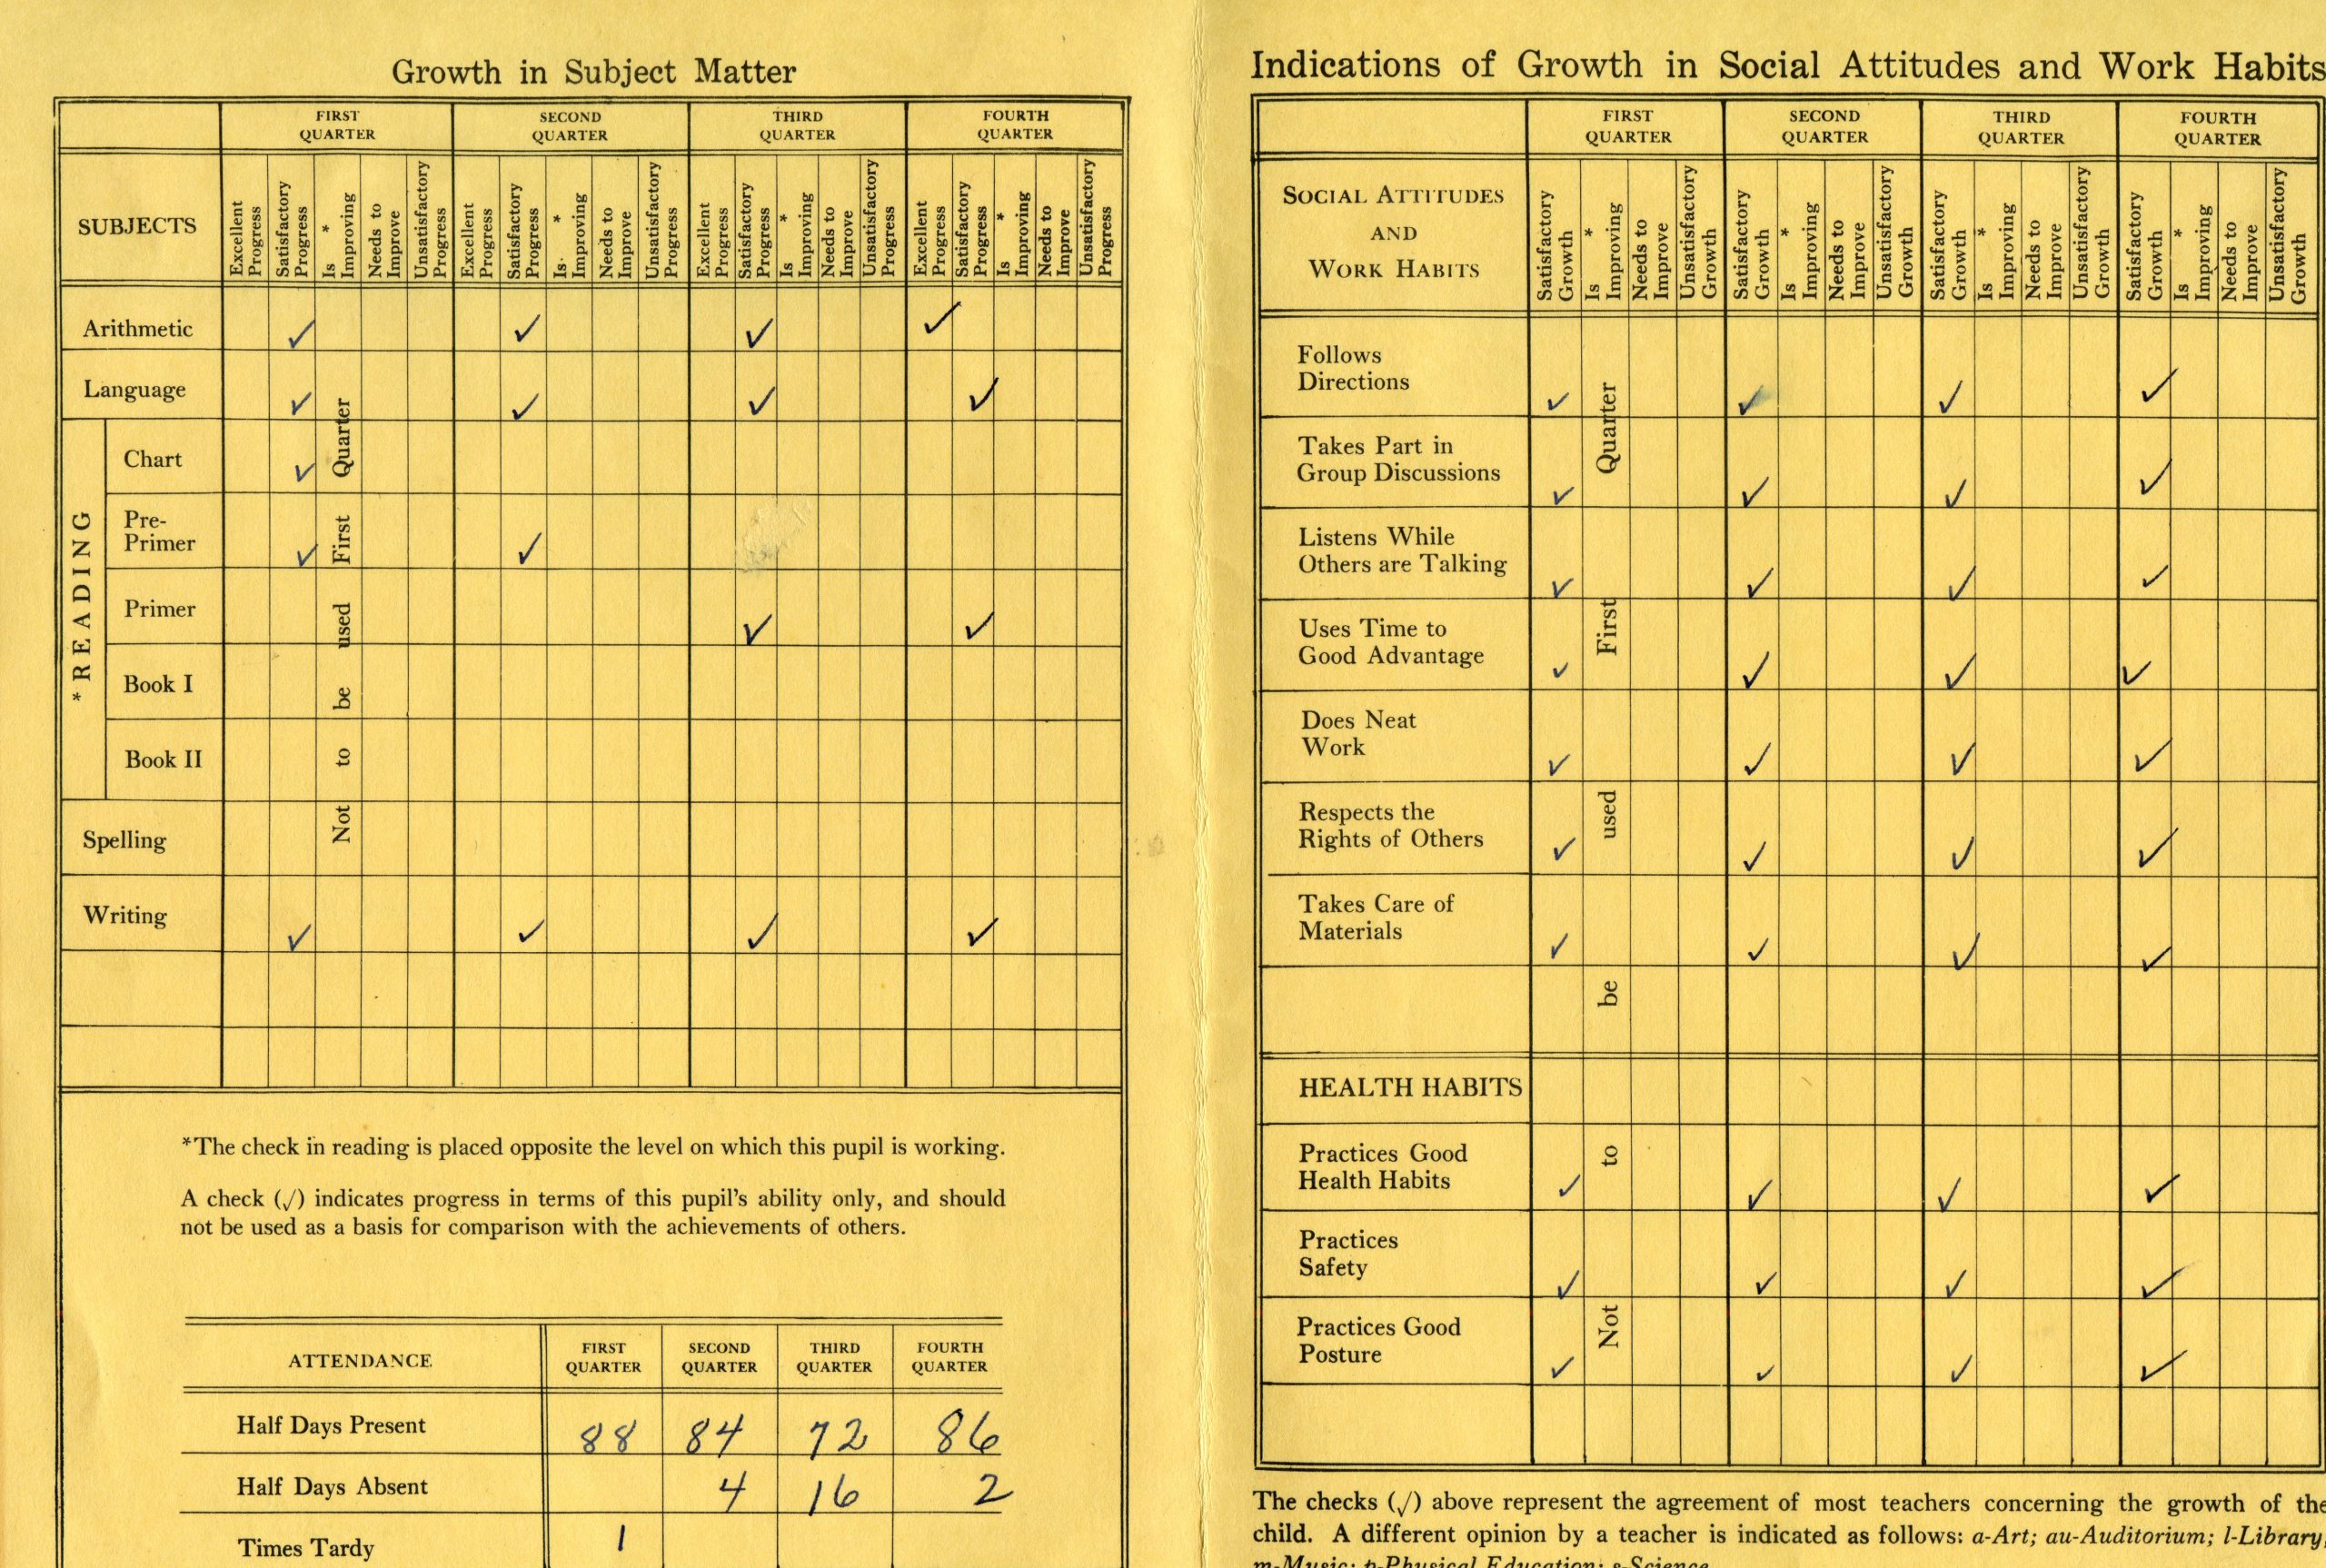 Growth in Subject Matter
FIRST QUARTER SECOND QUARTER THIRD QUARTER FOURTH QUARTER
SUBJECTS
Excellent Progress Satisfactory Progress * Is Improving Needs to Improve Unsatisfactory Progress Excellent Progress Satisfactory Progress * Is Improving Needs to Improve Unsatisfactory Progress Excellent Progress Satisfactory Progress * Is Improving Needs to Improve Unsatisfactory Progress Excellent Progress Satisfactory Progress * Is Improving Needs to Improve Unsatisfactory Progress
Arithmetic ✓ ✓ ✓ ✓
Language ✓ ✓ ✓ ✓
*READING
Chart ✓
Pre-
Primer ✓ ✓
Primer ✓ ✓
Book I
Book II
Spelling
Writing ✓ ✓ ✓ ✓
Not to be used First Quarter
*The check in reading is placed opposite the level on which this pupil is working.
A check (√) indicates progress in terms of this pupil's ability only, and should
not be used as a basis for comparison with the achievements of others.
ATTENDANCE FIRST QUARTER SECOND QUARTER THIRD QUARTER FOURTH QUARTER
Half Days Present 88 84 72 86
Half Days Absent 4 16 2
Times Tardy 1
Indications of Growth in Social Attitudes and Work Habits
FIRST QUARTER SECOND QUARTER THIRD QUARTER FOURTH QUARTER
SOCIAL ATTITUDES
AND
WORK HABITS
Satisfactory Growth * Is Improving Needs to Improve Unsatisfactory Growth Satisfactory Growth * Is Improving Needs to Improve Unsatisfactory Growth Satisfactory Growth * Is Improving Needs to Improve Unsatisfactory Growth Satisfactory Growth * Is Improving Needs to Improve Unsatisfactory Growth
Follows
Directions ✓ ✓ ✓ ✓
Takes Part in
Group Discussions ✓ ✓ ✓ ✓
Listens While
Others are Talking ✓ ✓ ✓ ✓
Uses Time to
Good Advantage ✓ ✓ ✓ ✓
Does Neat
Work ✓ ✓ ✓ ✓
Respects the
Rights of Others ✓ ✓ ✓ ✓
Takes Care of
Materials ✓ ✓ ✓ ✓
HEALTH HABITS
Practices Good
Health Habits ✓ ✓ ✓ ✓
Practices
Safety ✓ ✓ ✓ ✓
Practices Good
Posture ✓ ✓ ✓ ✓
Not to be used First Quarter
The checks (√) above represent the agreement of most teachers concerning the growth of the
child. A different opinion by a teacher is indicated as follows: a-Art; au-Auditorium; l-Library;
m-Music; p-Physical Education; s-Science